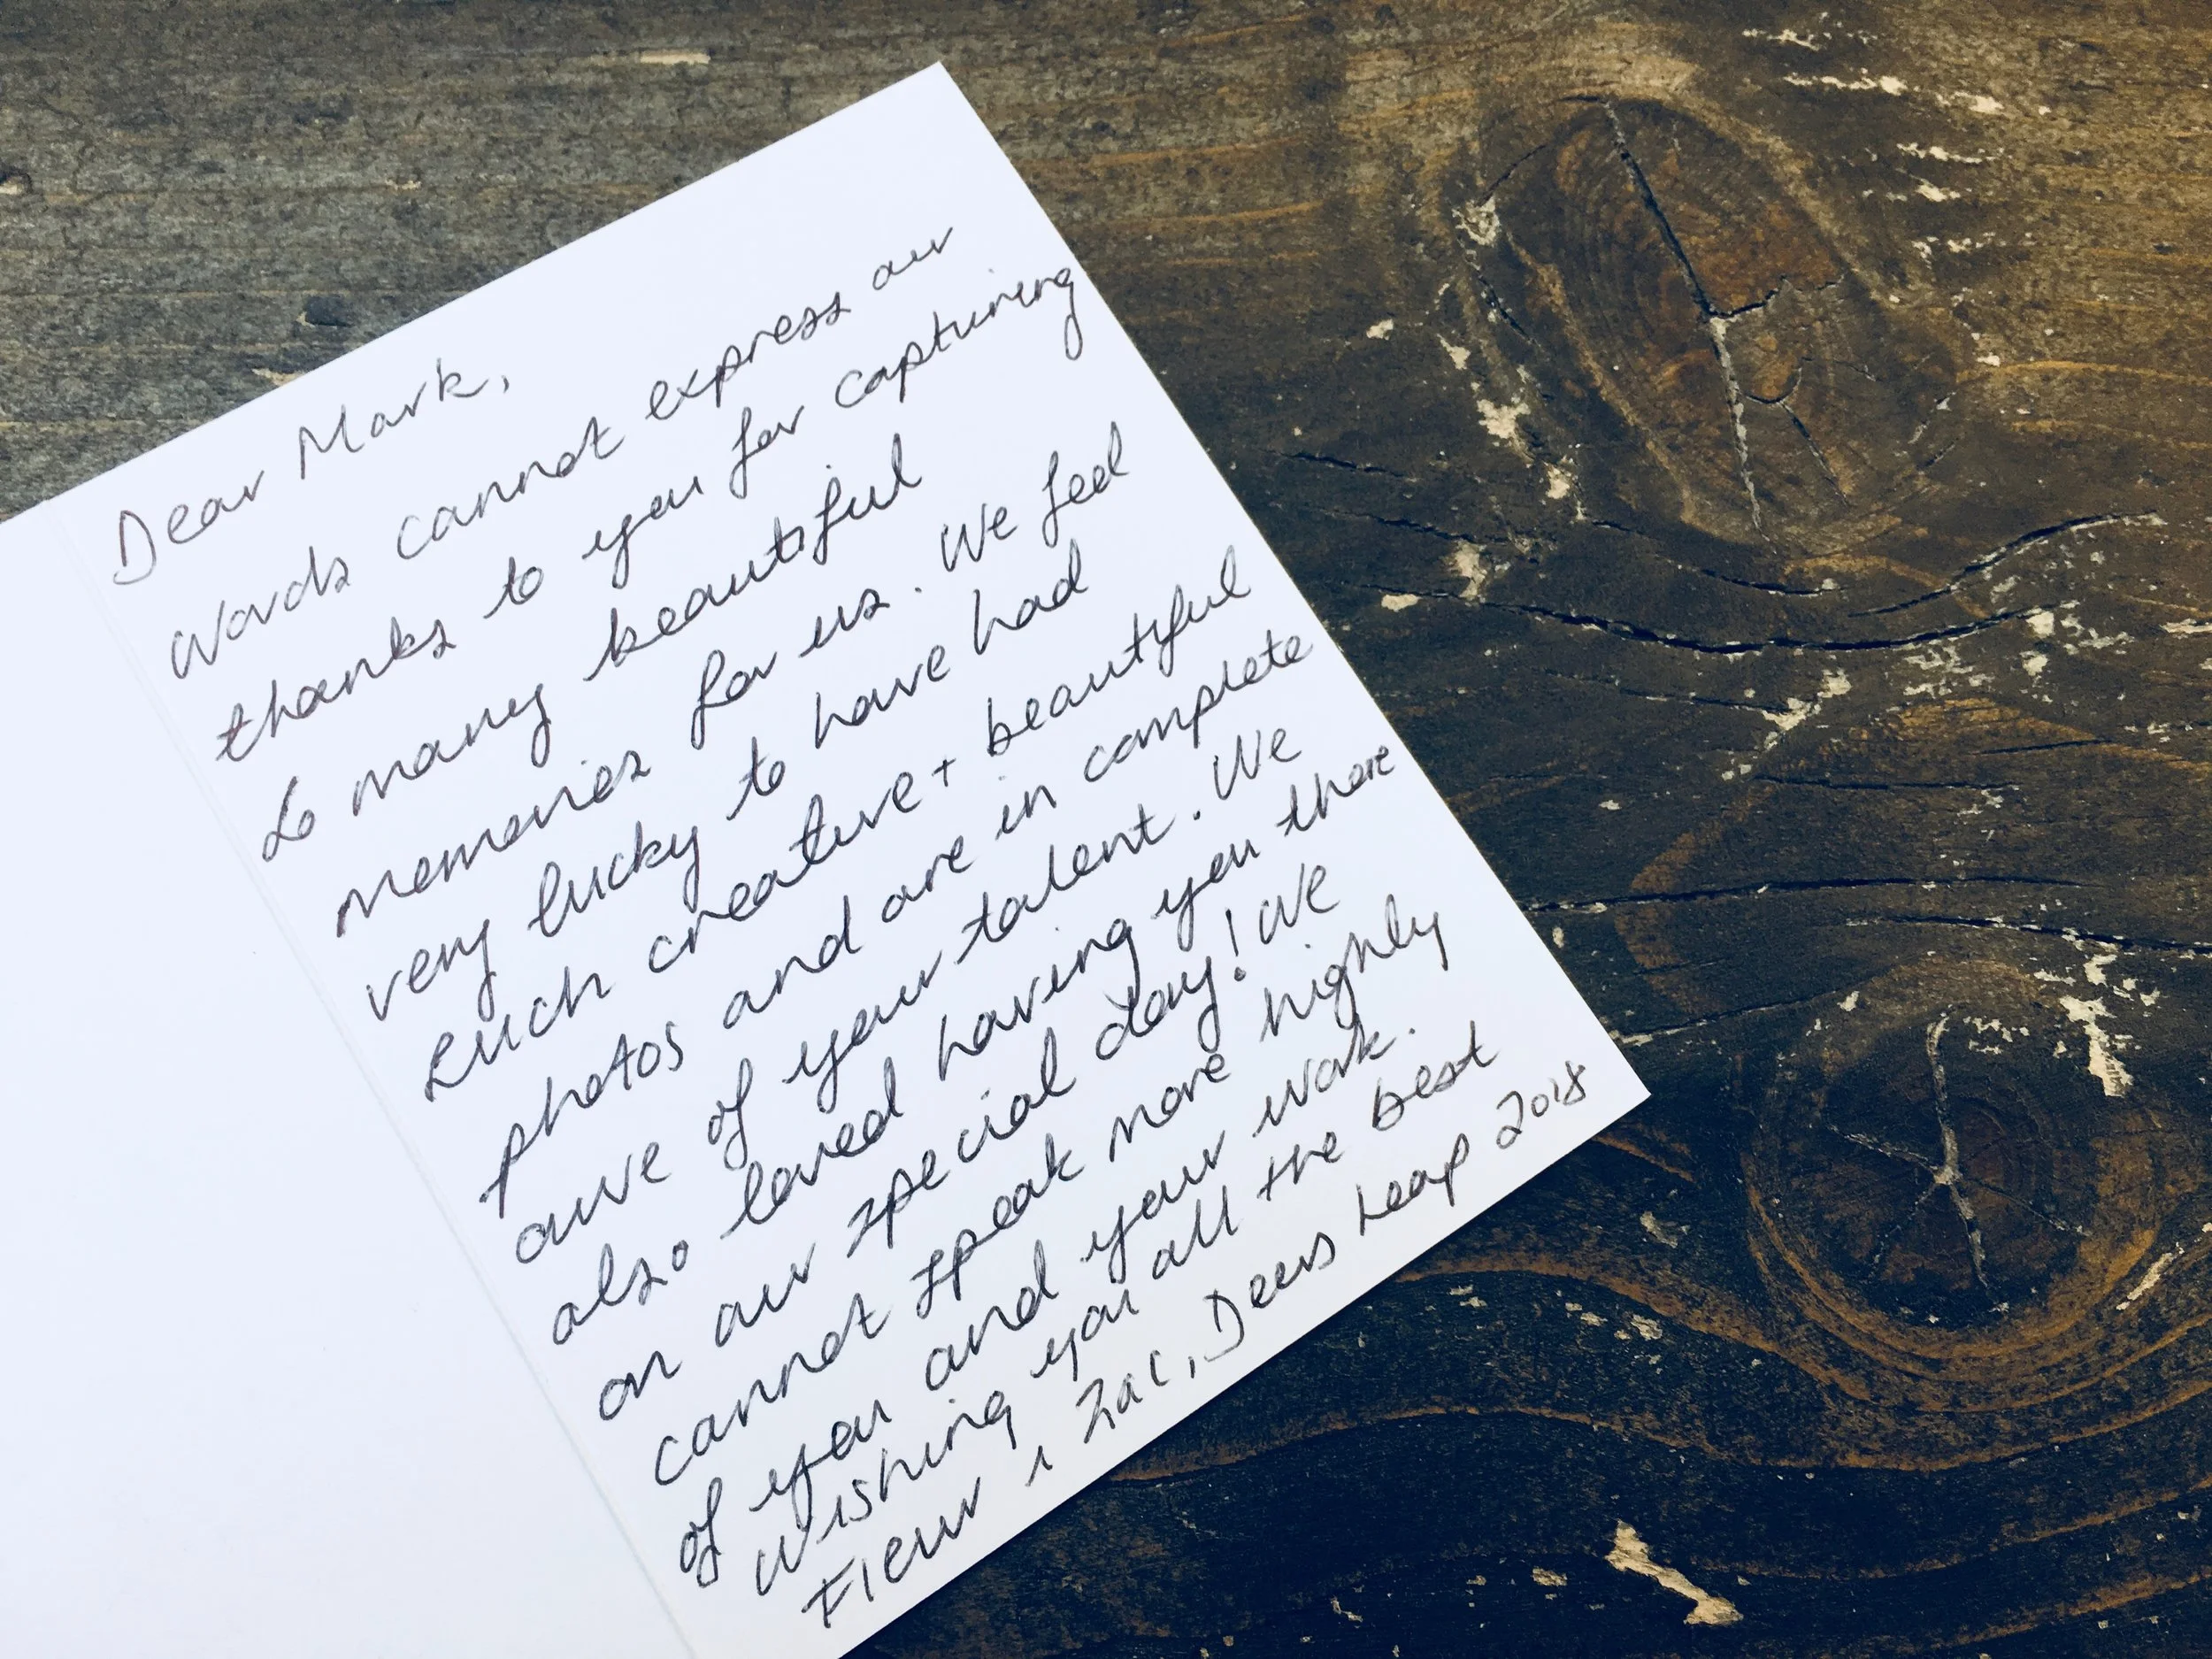 Dear Mark,
Words cannot express our
thanks to you for capturing
so many beautiful
memories for us. We feel
very lucky to have had
such creative + beautiful
photos and are in complete
awe of your talent. We
also loved having you there
on our special day! We
cannot speak more highly
of you and your work.
Wishing you all the best
Fleur & Zac, Deers Leap 2018